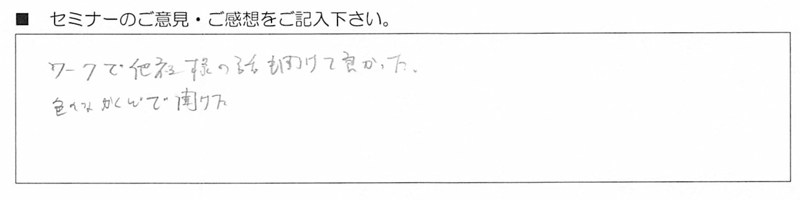 ■ セミナーのご意見・ご感想をご記入下さい。
ワークで他社様の話も聞けて良かった.
で聞けた